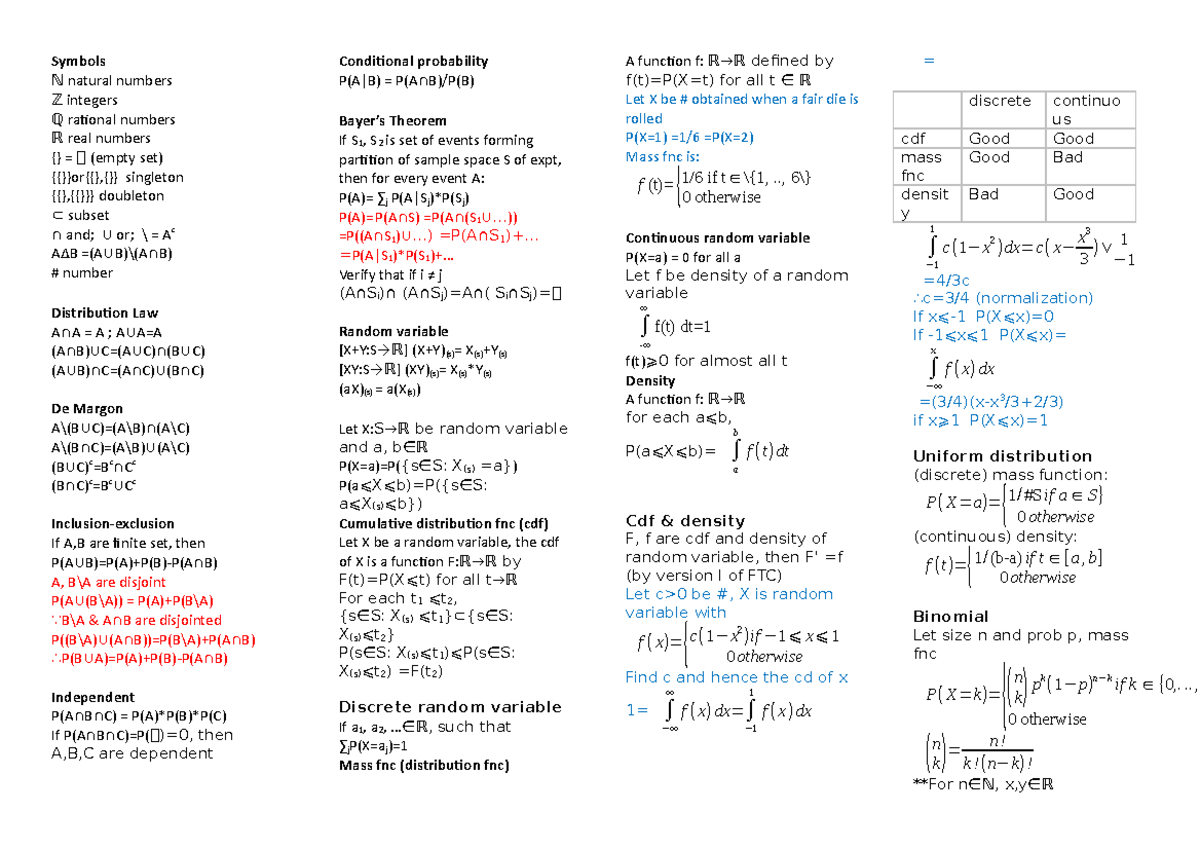 Symbols
ℕ natural numbers
ℤ integers
ℚ rational numbers
ℝ real numbers
{} = ▯ (empty set)
{{}}or{{},{}} singleton
{{},{{}}} doubleton
⊂ subset
∩ and; ∪ or; \ = Aᶜ
A∆B =(A∪B)\(A∩B)
# number
Distribution Law
A∩A = A ; A∪A=A
(A∩B)∪C=(A∪C)∩(B∪C)
(A∪B)∩C=(A∩C)∪(B∩C)
De Margon
A\(B∪C)=(A\B)∩(A\C)
A\(B∩C)=(A\B)∪(A\C)
(B∪C)ᶜ=Bᶜ∩Cᶜ
(B∩C)ᶜ=Bᶜ∪Cᶜ
Inclusion-exclusion
If A,B are finite set, then
P(A∪B)=P(A)+P(B)-P(A∩B)
A, B\A are disjoint
P(A∪(B\A)) = P(A)+P(B\A)
∵B\A & A∩B are disjointed
P((B\A)∪(A∩B))=P(B\A)+P(A∩B)
∴P(B∪A)=P(A)+P(B)-P(A∩B)
Independent
P(A∩B∩C) = P(A)*P(B)*P(C)
If P(A∩B∩C)=P(▯)=0, then
A,B,C are dependent
Conditional probability
P(A|B) = P(A∩B)/P(B)
Bayer’s Theorem
If S₁, S₂ is set of events forming
partition of sample space S of expt,
then for every event A:
P(A)= ∑ⱼ P(A|Sⱼ)*P(Sⱼ)
P(A)=P(A∩S) =P(A∩(S₁∪…))
=P((A∩S₁)∪…) =P(A∩S₁)+…
=P(A|S₁)*P(S₁)+…
Verify that if i ≠ j
(A∩Sᵢ)∩ (A∩Sⱼ)=A∩( Sᵢ∩Sⱼ)=▯
Random variable
[X+Y:S→ℝ] (X+Y)₍ₛ₎= X₍ₛ₎+Y₍ₛ₎
[XY:S→ℝ] (XY)₍ₛ₎= X₍ₛ₎*Y₍ₛ₎
(aX)₍ₛ₎ = a(X₍ₛ₎)
Let X:S→ℝ be random variable
and a, b∈ℝ
P(X=a)=P({s∈S: X₍ₛ₎ =a})
P(a⩽X⩽b)=P({s∈S:
a⩽X₍ₛ₎⩽b})
Cumulative distribution fnc (cdf)
Let X be a random variable, the cdf
of X is a function F:ℝ→ℝ by
F(t)=P(X⩽t) for all t→ℝ
For each t₁ ⩽t₂,
{s∈S: X₍ₛ₎ ⩽t₁}⊂{s∈S:
X₍ₛ₎⩽t₂}
P(s∈S: X₍ₛ₎⩽t₁)⩽P(s∈S:
X₍ₛ₎⩽t₂) =F(t₂)
Discrete random variable
If a₁, a₂, …∈ℝ, such that
∑ⱼP(X=aⱼ)=1
Mass fnc (distribution fnc)
A function f: ℝ→ℝ defined by
f(t)=P(X=t) for all t ∈ ℝ
Let X be # obtained when a fair die is
rolled
P(X=1) =1/6 =P(X=2)
Mass fnc is:
f (t)={1/6 if t ∈\{1, .., 6\}
0 otherwise
Continuous random variable
P(X=a) = 0 for all a
Let f be density of a random
variable
∞
∫ f(t) dt=1
-∞
f(t)⩾0 for almost all t
Density
A function f: ℝ→ℝ
for each a⩽b,
P(a⩽X⩽b)= ∫ₐᵇ f(t)dt
Cdf & density
F, f are cdf and density of
random variable, then F' =f
(by version I of FTC)
Let c>0 be #, X is random
variable with
f(x)={c(1−x²)if−1⩽x⩽1
0otherwise
Find c and hence the cd of x
∞ 1
1= ∫ f(x)dx=∫ f(x)dx
−∞ −1
=
discrete continuo
us
cdf Good Good
mass
fnc Good Bad
densit
y Bad Good
1
∫ c(1−x²)dx=c(x−x³/3)∨ 1
−1 −1
=4/3c
∴c=3/4 (normalization)
If x⩽-1 P(X⩽x)=0
If -1⩽x⩽1 P(X⩽x)=
x
∫ f(x)dx
−∞
=(3/4)(x-x³/3+2/3)
if x⩾1 P(X⩽x)=1
Uniform distribution
(discrete) mass function:
P(X=a)={1/#Sif a∈S}
0otherwise
(continuous) density:
f(t)={1/(b-a)if t∈[a,b]
0otherwise
Binomial
Let size n and prob p, mass
fnc
P(X=k)={(n k)pᵏ(1−p)ⁿ⁻ᵏif k∈{0,..,
0 otherwise
(n k)=n!/k!(n−k)!
**For n∈ℕ, x,y∈ℝ